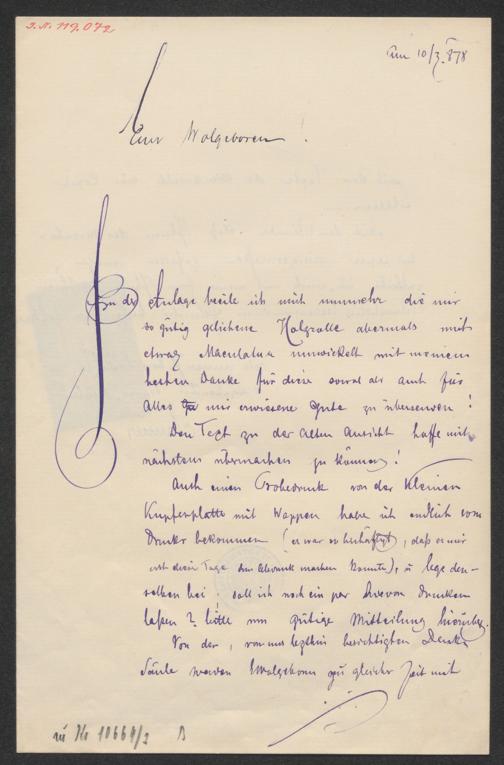 I.N. 119.072
am 10/3. 878
Euer Wolgeboren!
In der Anlage beeile ich mich nunmehr die mir
so gütig geliehene Holzrolle abermals mit
etwas Maculatur umwickelt mit meinem
besten Danke für diese sowol als auch für
Alles mir erwiesene Gute zu übersenden!
Den Text zu der alten Ansicht hoffe
nächstens übermachen zu können!
Auch einen Probedruck von der kleinen
Kupferplatte mit Wappen habe ich endlich vom
Drucker bekommen (er war so beschäftigt, daß er mir
erst diese Tage den Abdruck machen konnte), u lege den-
selben bei; soll ich noch ein par davon drucken
laßen? bitte um gütige Mitteilung hierüber.
Von der, von uns letzthin besichtigten Denk-
säule waren Ewolgeborn zu gleicher Zeit mit
zu Nr 10664/2 B